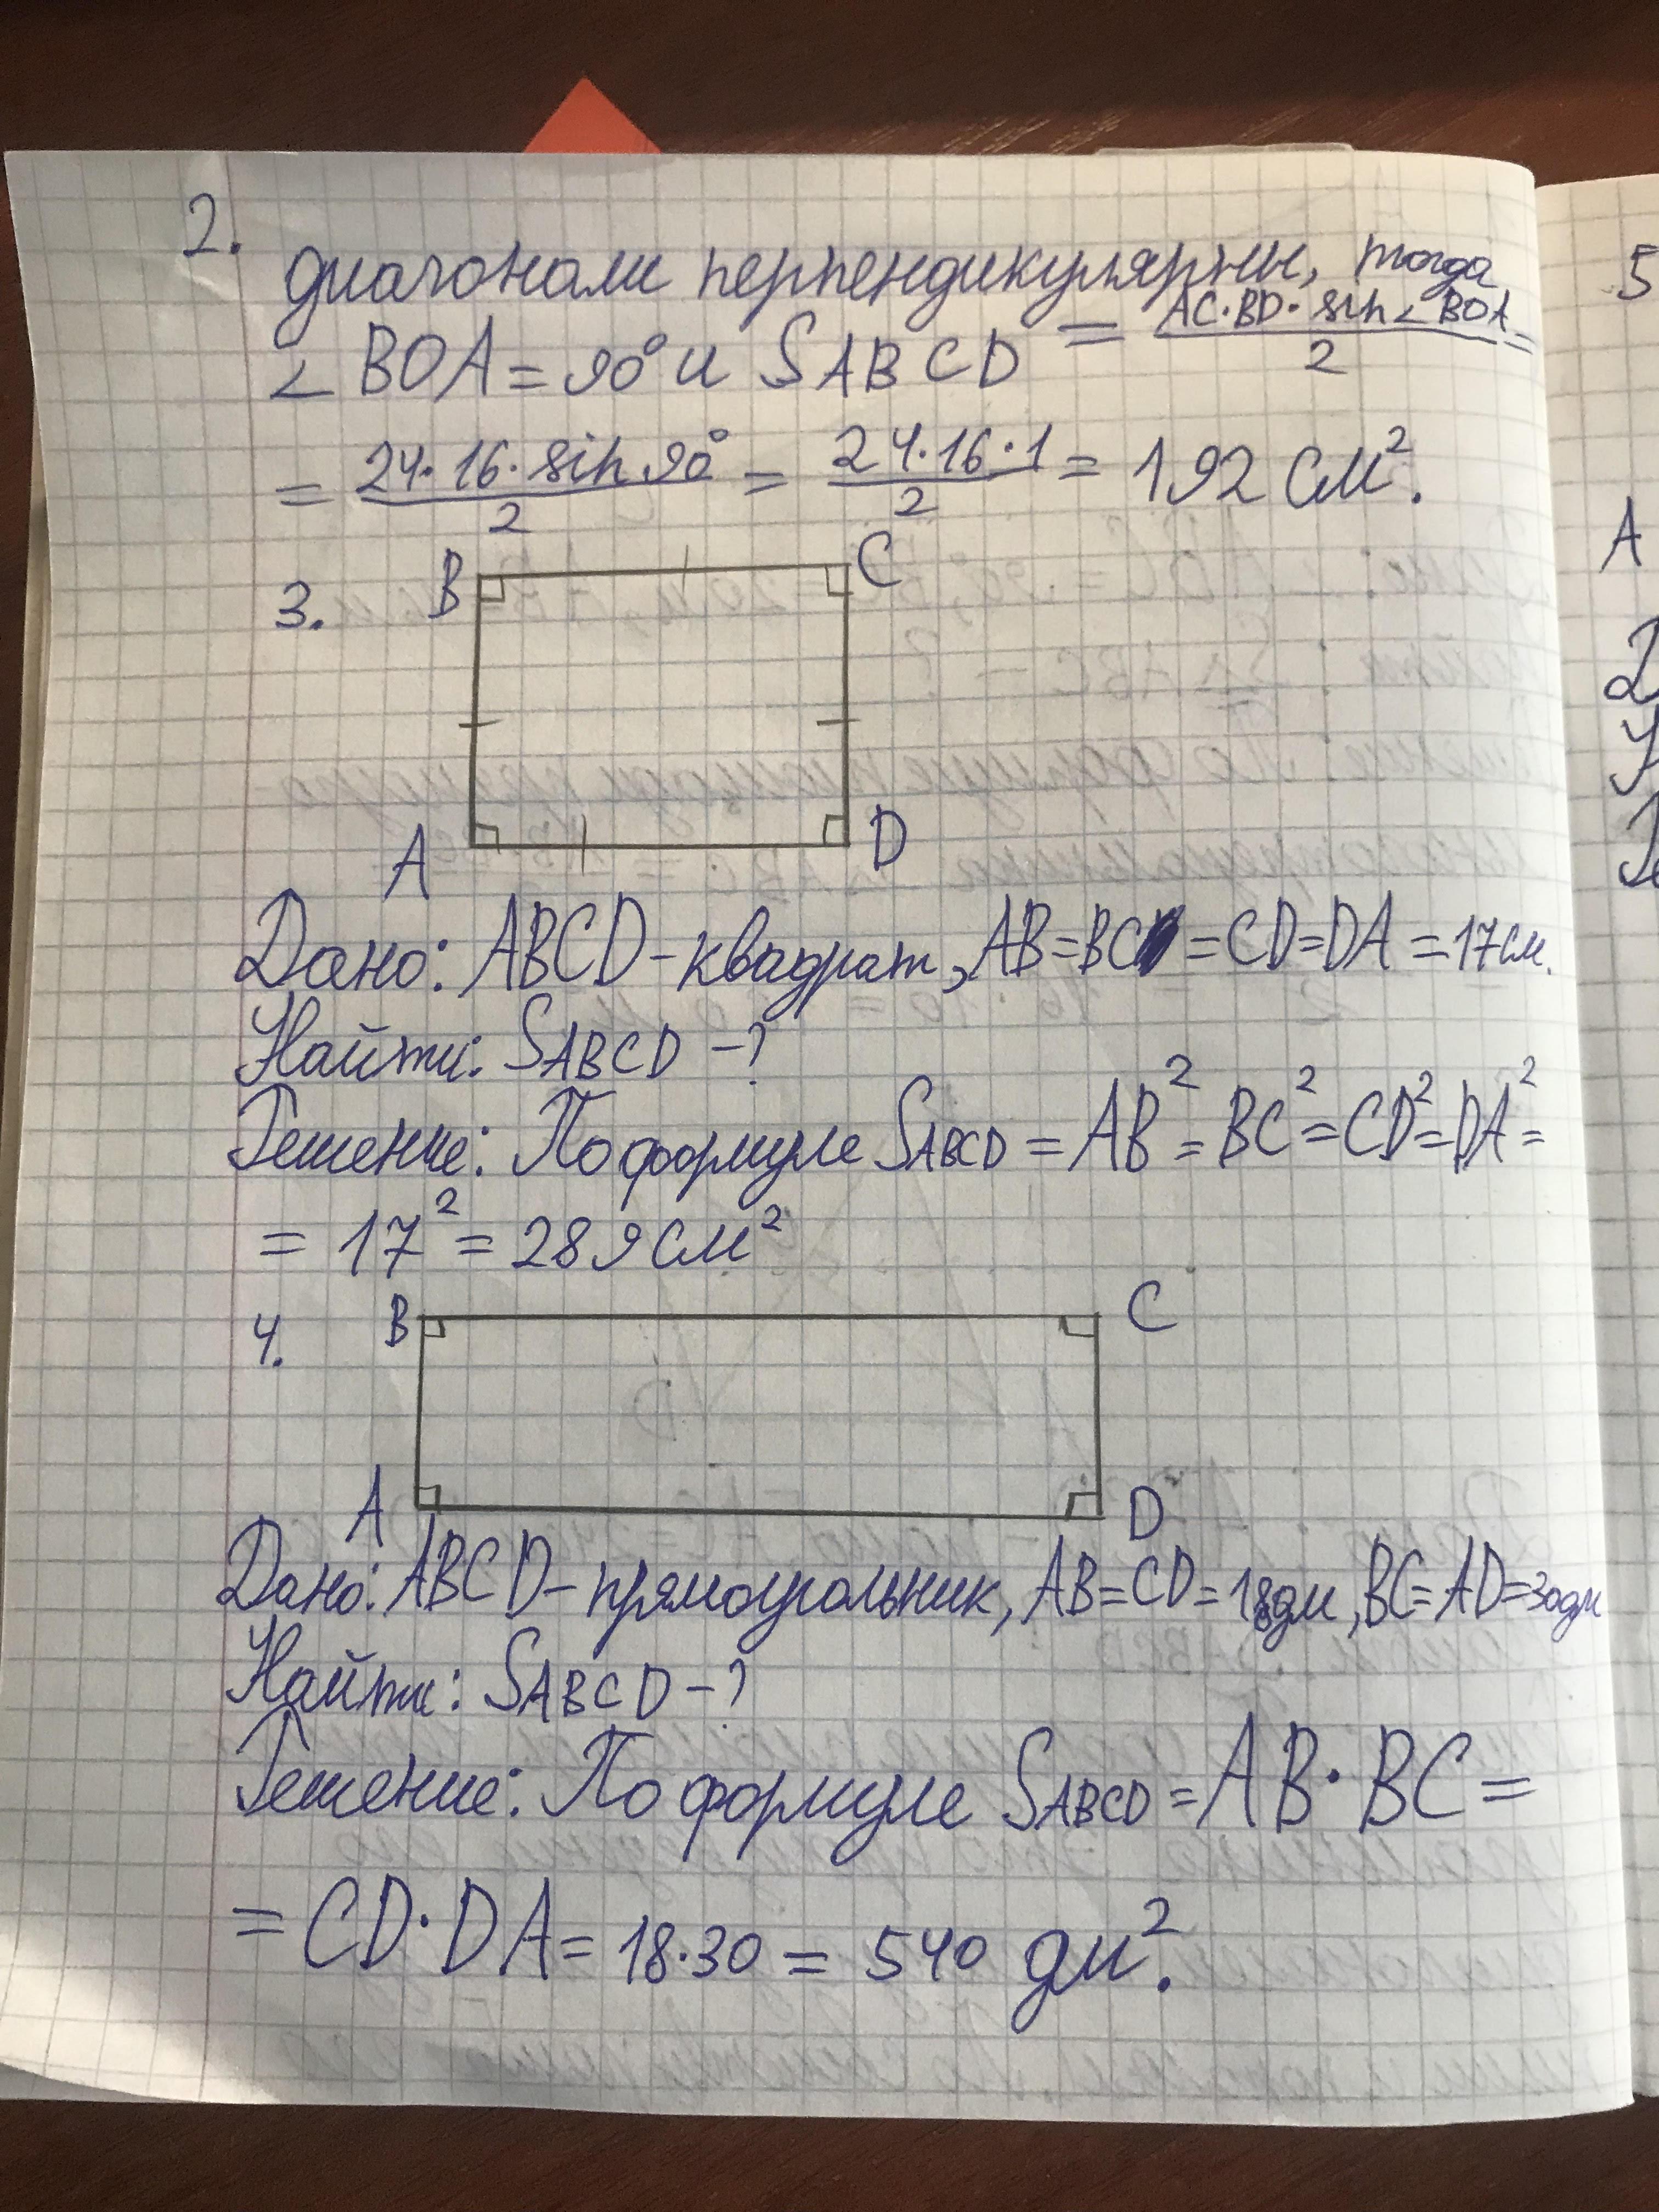 2.
диагонали перпендикулярны, тогда
∠ BOA = 90° и SABCD = AC·BD·sin∠BOA / 2 =
= 24·16·sin90° / 2 = 24·16·1 / 2 = 192 см².
3.
B C
A D
Дано: ABCD - квадрат, AB=BC=CD=DA=17см.
Найти: SABCD -?
Решение: По формуле SABCD = AB² = BC² = CD² = DA² =
= 17² = 289 см²
4.
B C
A D
Дано: ABCD - прямоугольник, AB=CD=18дм, BC=AD=30дм
Найти: SABCD -?
Решение: По формуле SABCD = AB·BC =
= CD·DA = 18·30 = 540 дм².
5
A